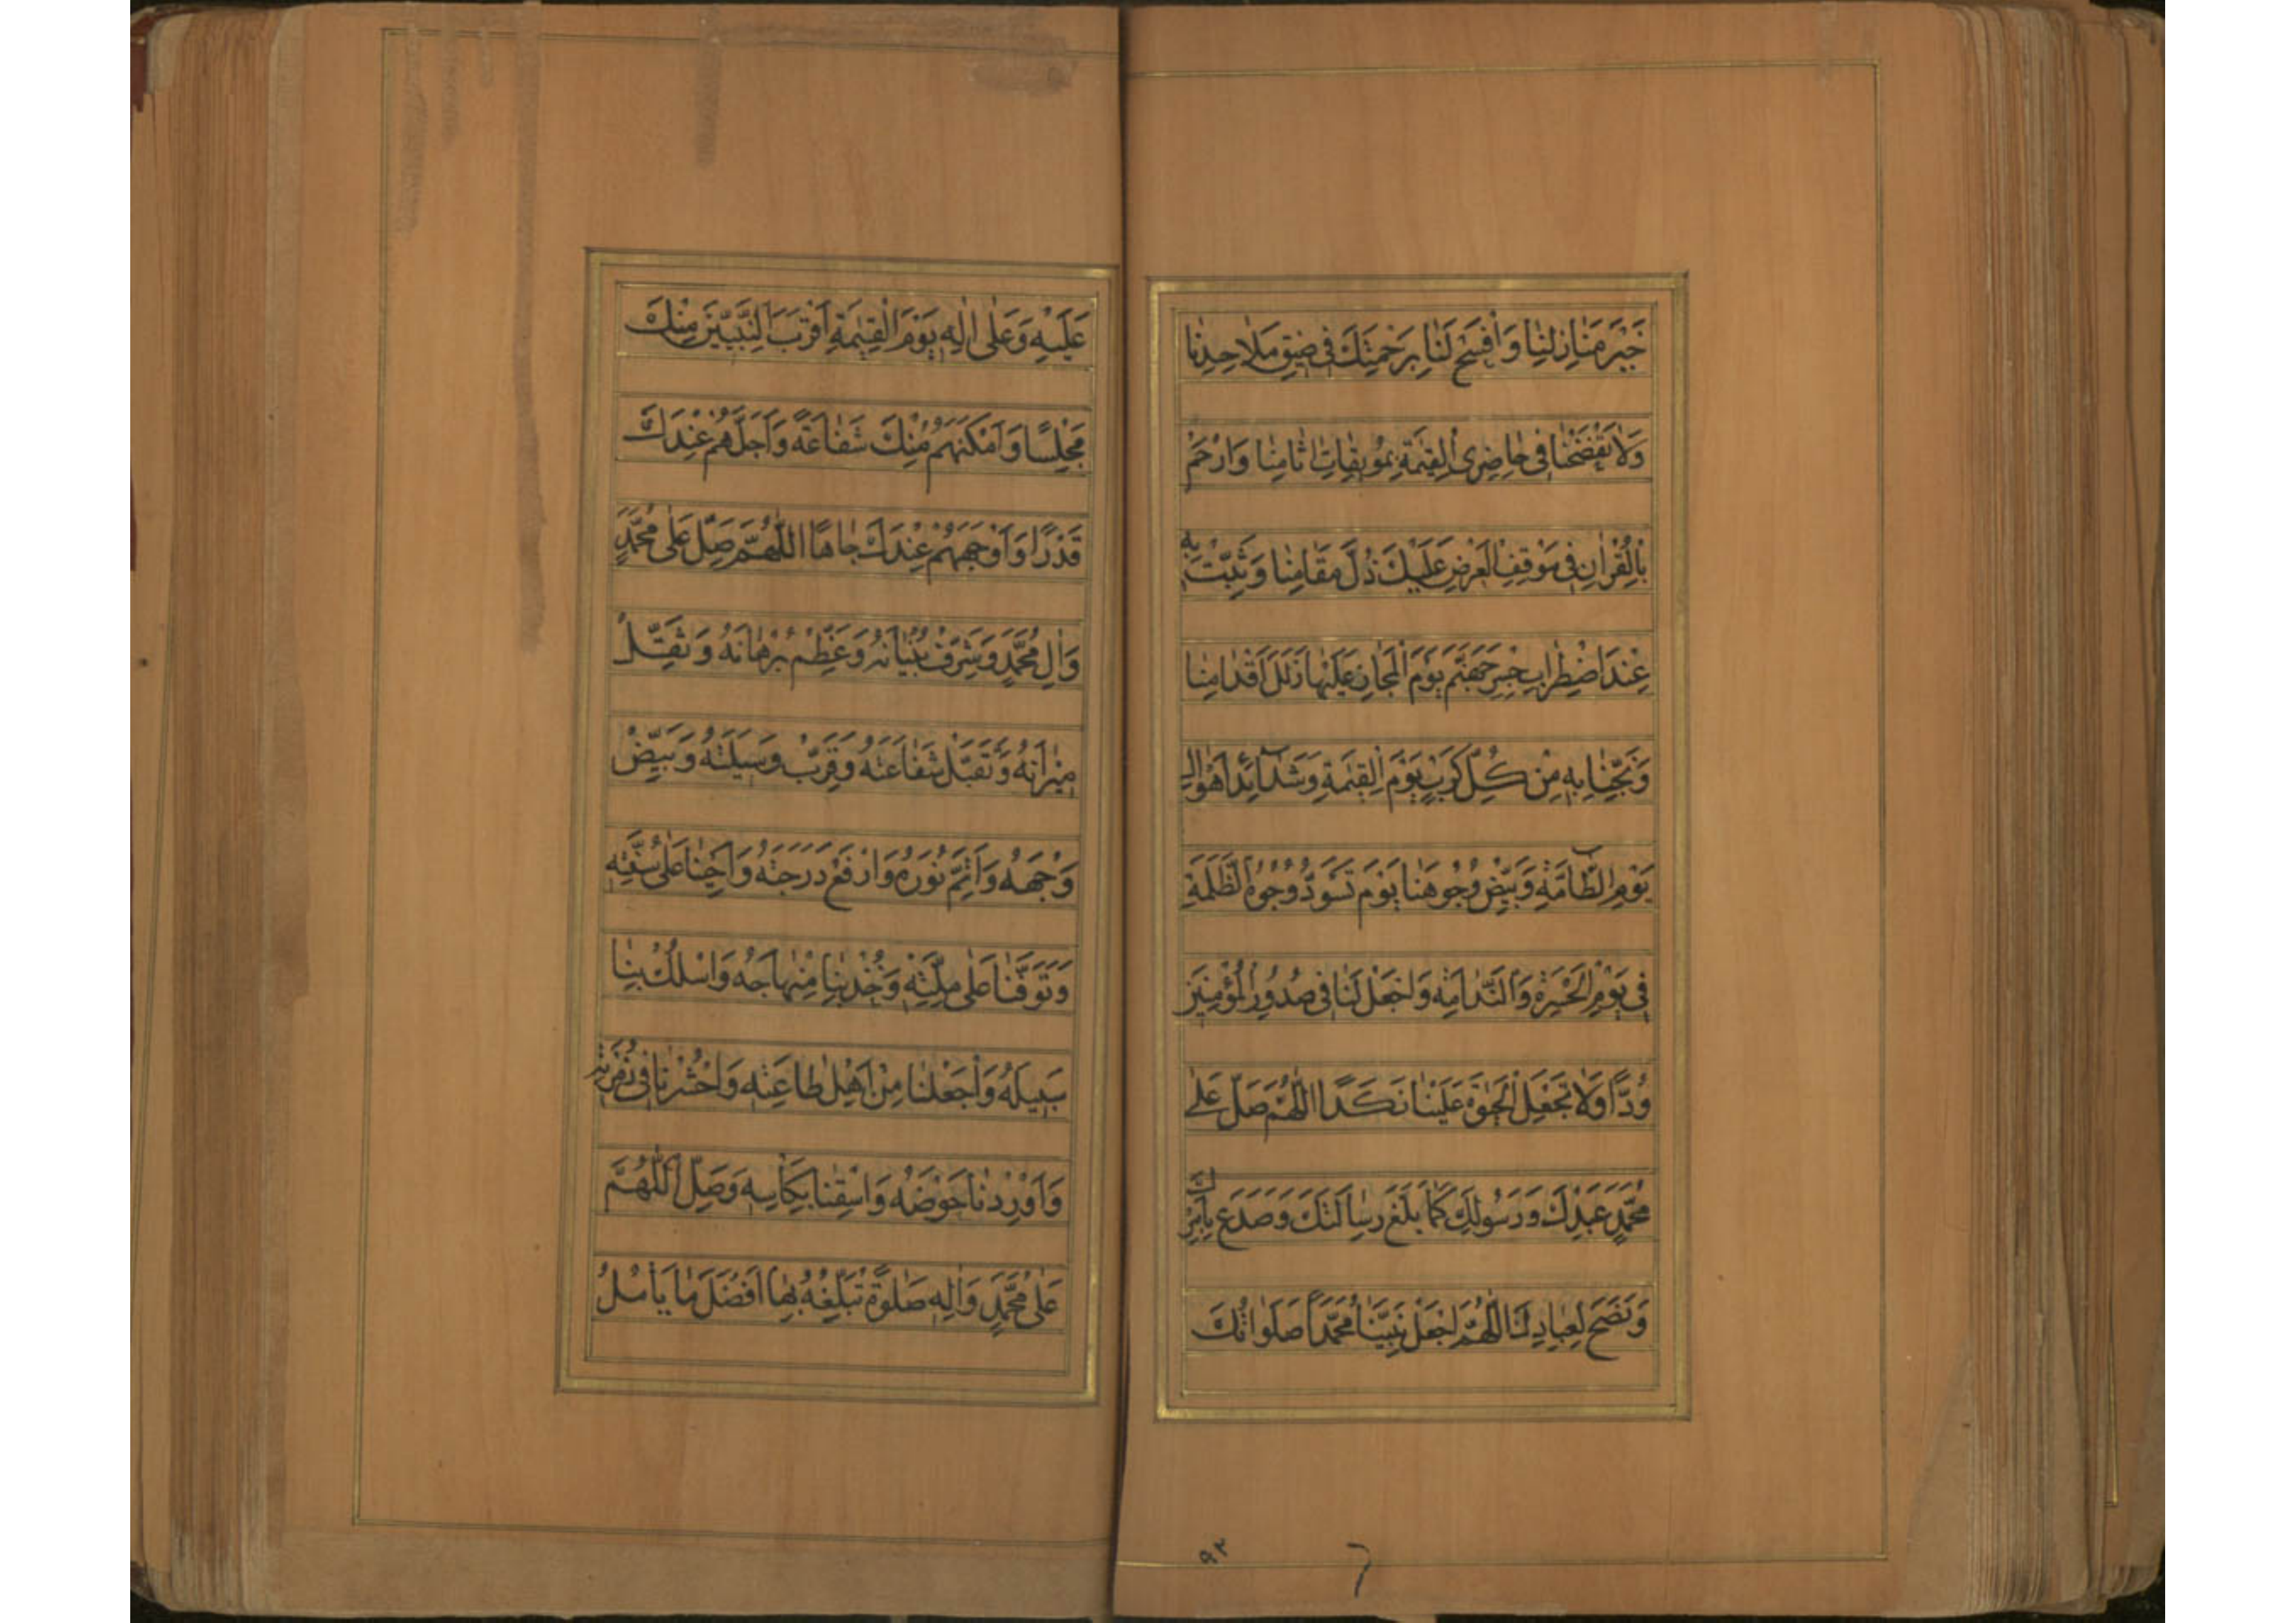 خَيْرَ مَنَازِلِنَا وَافْسَحْ لَنَا بِرَحْمَتِكَ فِي ضِيقِ مَلَاحِدِنَا
وَلَا تَفْضَحْنَا فِي حَاضِرِي الْقِيٰمَةِ بِمُوبِقَاتِ اٰثَامِنَا وَارْحَمْ
بِالْقُرْاٰنِ فِي مَوْقِفِ الْعَرْضِ عَلَيْكَ ذُلَّ مَقَامِنَا وَثَبِّتْ بِهِ
عِنْدَ اضْطِرَابِ جِسْرِ جَهَنَّمَ يَوْمَ الْمَجَازِ عَلَيْهَا زَلَلَ اَقْدَامِنَا
وَنَجِّنَا بِهِ مِنْ كُلِّ كَرْبٍ يَوْمَ الْقِيٰمَةِ وَشَدَائِدِ اَهْوَالِ
يَوْمِ الطَّامَّةِ وَبَيِّضْ وُجُوهَنَا يَوْمَ تَسْوَدُّ وُجُوهُ الظَّلَمَةِ
فِي يَوْمِ الْحَسْرَةِ وَالنَّدَامَةِ وَاجْعَلْ لَنَا فِي صُدُورِ الْمُؤْمِنِينَ
وُدًّا وَلَا تَجْعَلِ الْحَيٰوةَ عَلَيْنَا نَكَدًا اَللّٰهُمَّ صَلِّ عَلٰى
مُحَمَّدٍ عَبْدِكَ وَرَسُولِكَ كَمَا بَلَّغَ رِسَالَتَكَ وَصَدَعَ بِاَمْرِكَ
وَنَصَحَ لِعِبَادِكَ اَللّٰهُمَّ اجْعَلْ نَبِيَّنَا مُحَمَّدًا صَلَوَاتُكَ
۹۳
عَلَيْهِ وَعَلٰى اٰلِهِ يَوْمَ الْقِيٰمَةِ اَقْرَبَ النَّبِيِّينَ مِنْكَ
مَجْلِسًا وَاَمْكَنَهُمْ مِنْكَ شَفَاعَةً وَاَجَلَّهُمْ عِنْدَكَ
قَدْرًا وَاَوْجَهَهُمْ عِنْدَكَ جَاهًا اَللّٰهُمَّ صَلِّ عَلٰى مُحَمَّدٍ
وَاٰلِ مُحَمَّدٍ وَشَرِّفْ بُنْيَانَهُ وَعَظِّمْ بُرْهَانَهُ وَثَقِّلْ
مِيزَانَهُ وَتَقَبَّلْ شَفَاعَتَهُ وَقَرِّبْ وَسِيلَتَهُ وَبَيِّضْ
وَجْهَهُ وَاَتِمَّ نُورَهُ وَارْفَعْ دَرَجَتَهُ وَاَحْيِنَا عَلٰى سُنَّتِهِ
وَتَوَفَّنَا عَلٰى مِلَّتِهِ وَخُذْ بِنَا مِنْهَاجَهُ وَاسْلُكْ بِنَا
سَبِيلَهُ وَاجْعَلْنَا مِنْ اَهْلِ طَاعَتِهِ وَاحْشُرْنَا فِي زُمْرَتِهِ
وَاَوْرِدْنَا حَوْضَهُ وَاسْقِنَا بِكَاْسِهِ وَصَلِّ اللّٰهُمَّ
عَلٰى مُحَمَّدٍ وَاٰلِهِ صَلٰوةً تُبَلِّغُهُ بِهَا اَفْضَلَ مَا يَاْمُلُ